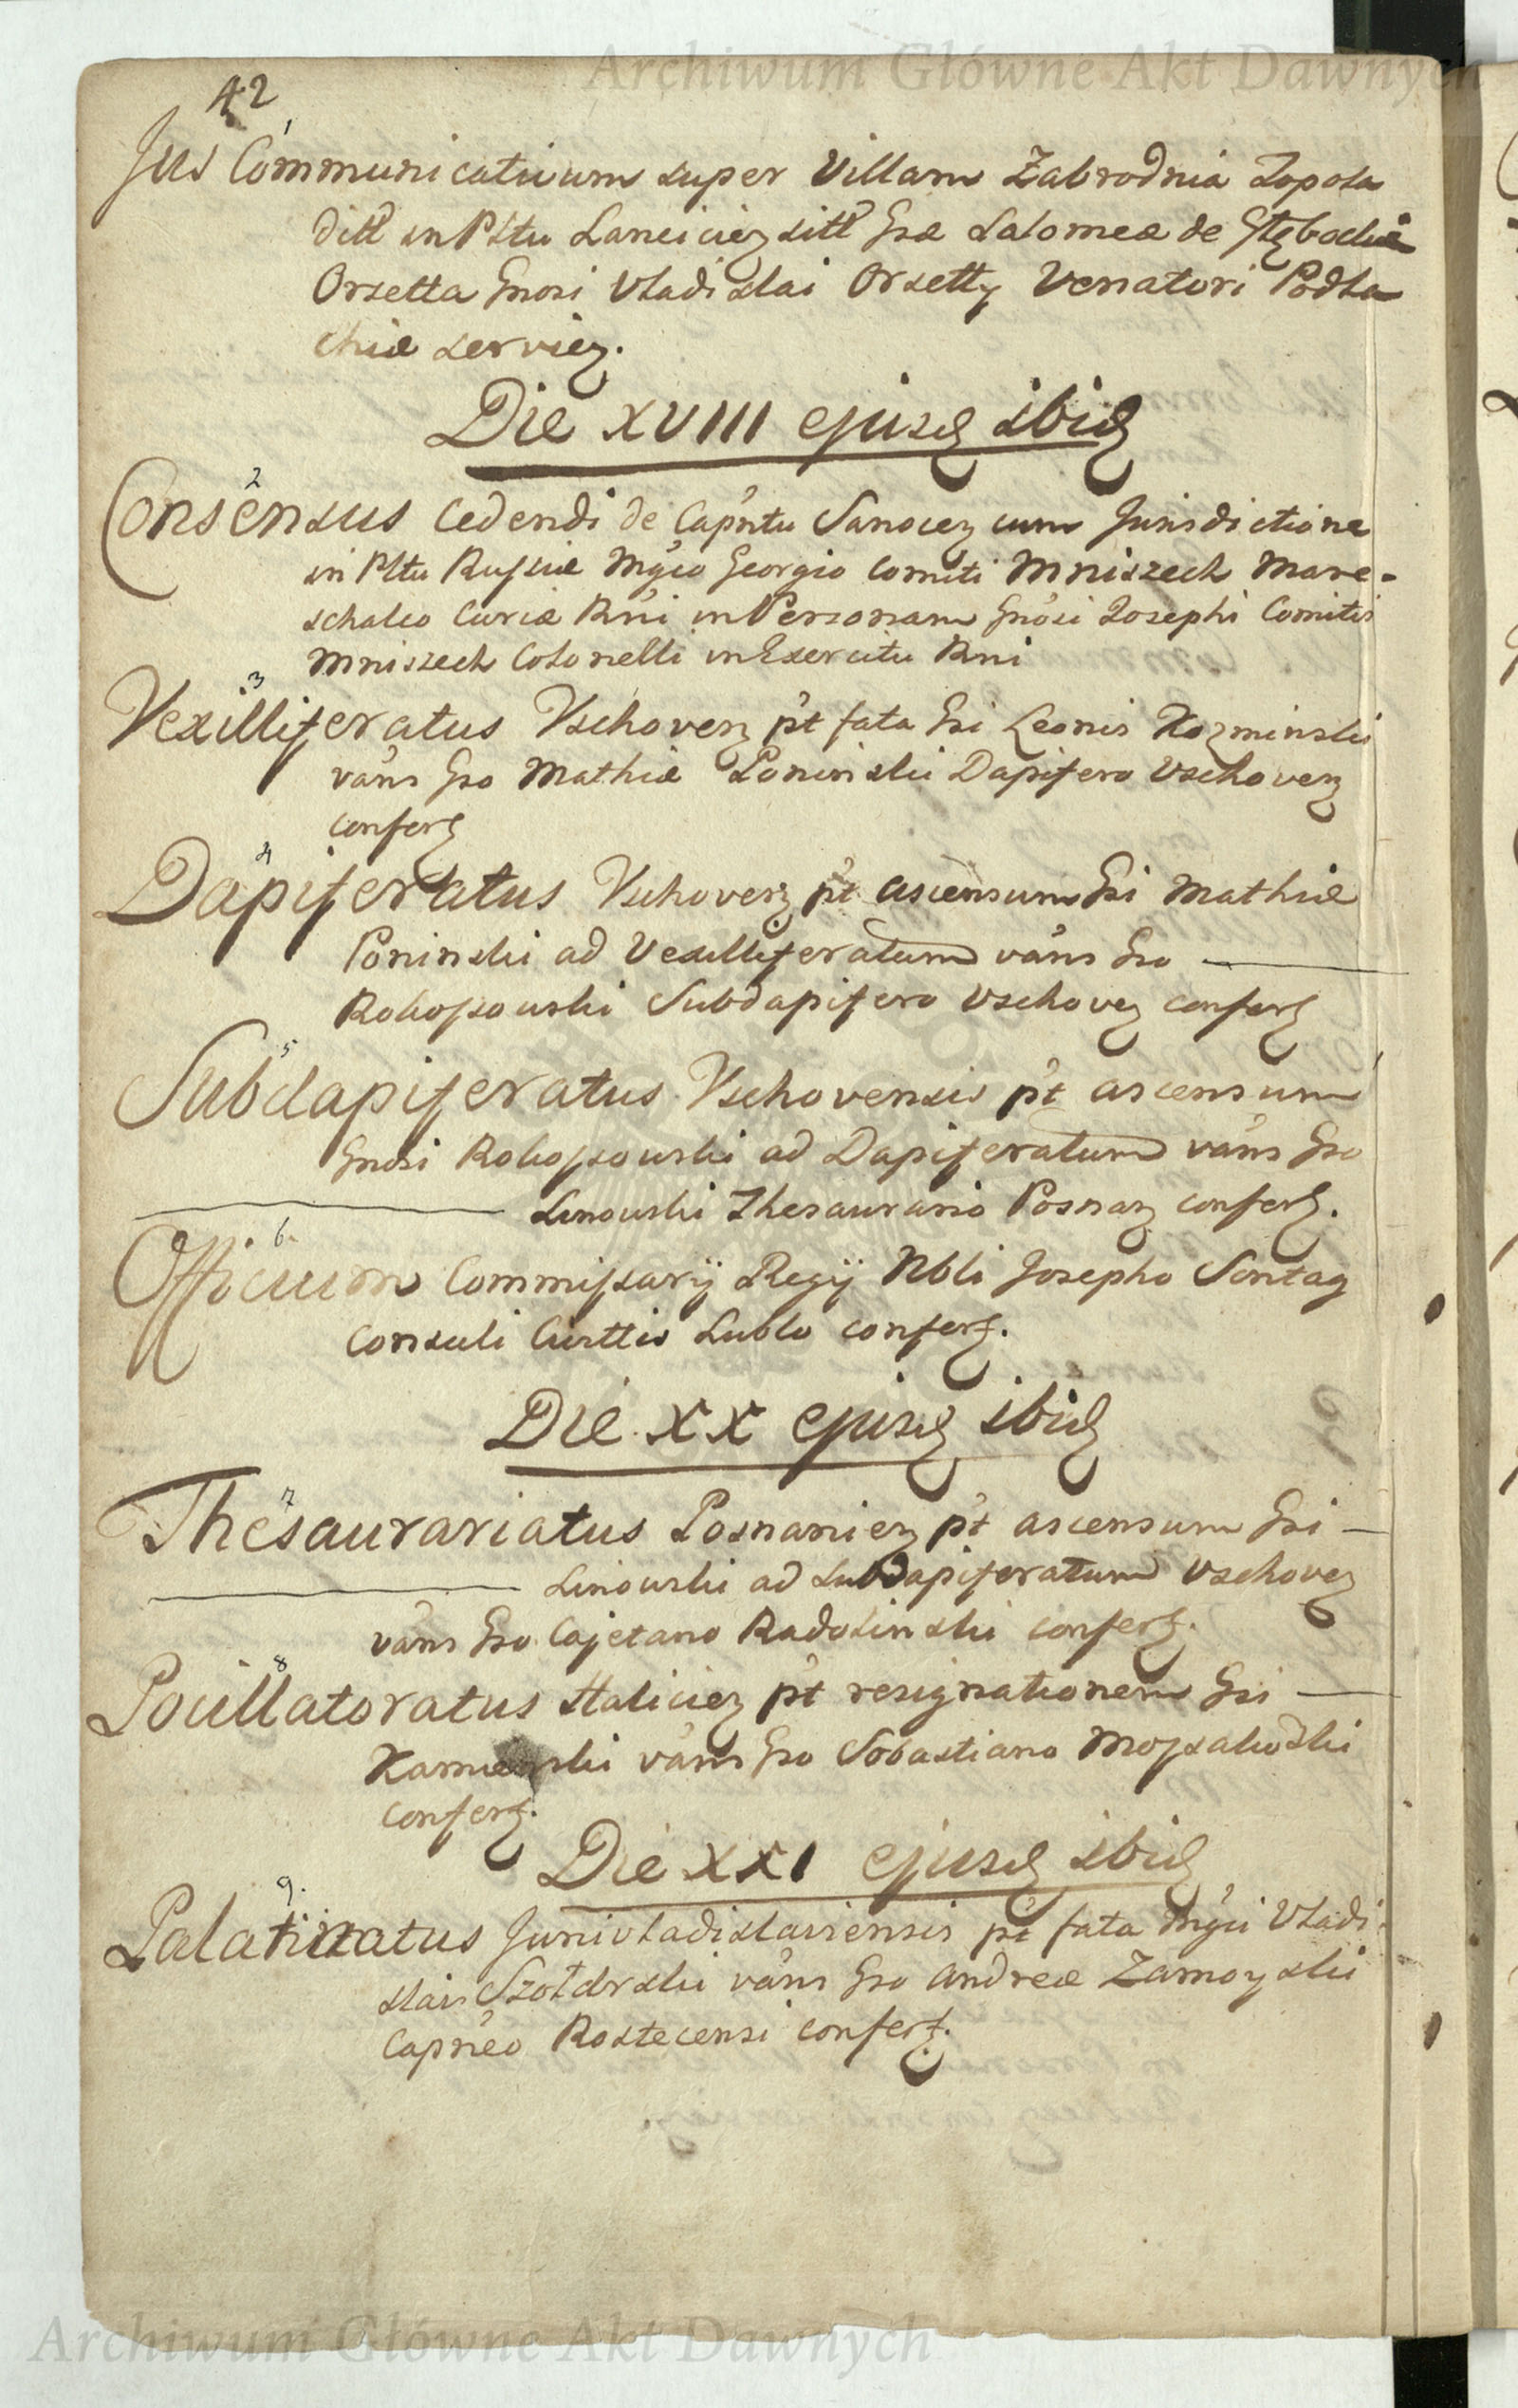 Archiwum Główne Akt Dawnych
42
1
Jus Communicativum super Villam Zabrodnia Topola
dict in Pltu Lancicien sitt Gsæ Salomeæ de
Orsetta Gnosi Vladislai Orsetty Venatori Podla
chiæ servien.
Die XVIII ejusd ibid
2
Consensus Cedendi de Capntu Sanocen cum Jurisdictione
in Pltu Russiæ Mgco Georgio Comiti Mniszech Mare-
schalco Curiæ Rni in Personam Gnosi Josephi Comitis
Mniszech Colonelli in Exercitu Rni
3
Vexilliferatus Vschoven pt fata Gsi Leonis Kozminski
vans Gso Mathiæ Poninski Dapifero Vschoven
confert
4
Dapiferatus Vschoven pt ascensum Gsi Mathiæ
Poninski ad Vexilliferatum vans Gso —
Rokossowski Subdapifero Vschoven confert
5
Subdapiferatus Vschovensis pt ascensum
Gnosi Rokossowski ad Dapiferatum vans Gso
— Linowski Thesaurario Posnan confert.
6.
Officium Commissarij Regij Nbli Josepho Sontag
Consuli Civttis Lublo confert.
Die XX ejusd ibid
7
Thesaurariatus Posnanien pt ascensum Gsi —
— Linowski ad Subdapiferatum Vschoven
vans Gso Cajetano Radolinski confert.
8
Pocillatoratus Halicien pt resignationem Gsi —
Kamienski vans Gso Sobastiano
confert.
Die XXI ejusd ibid
9.
Palatinatus Junivladislaviensis pt fata Mgci Vladi
slai Szołdrski vans Gso Andreæ Zamoyski
Capneo Rostecensi confert.
Archiwum Główne Akt Dawnych